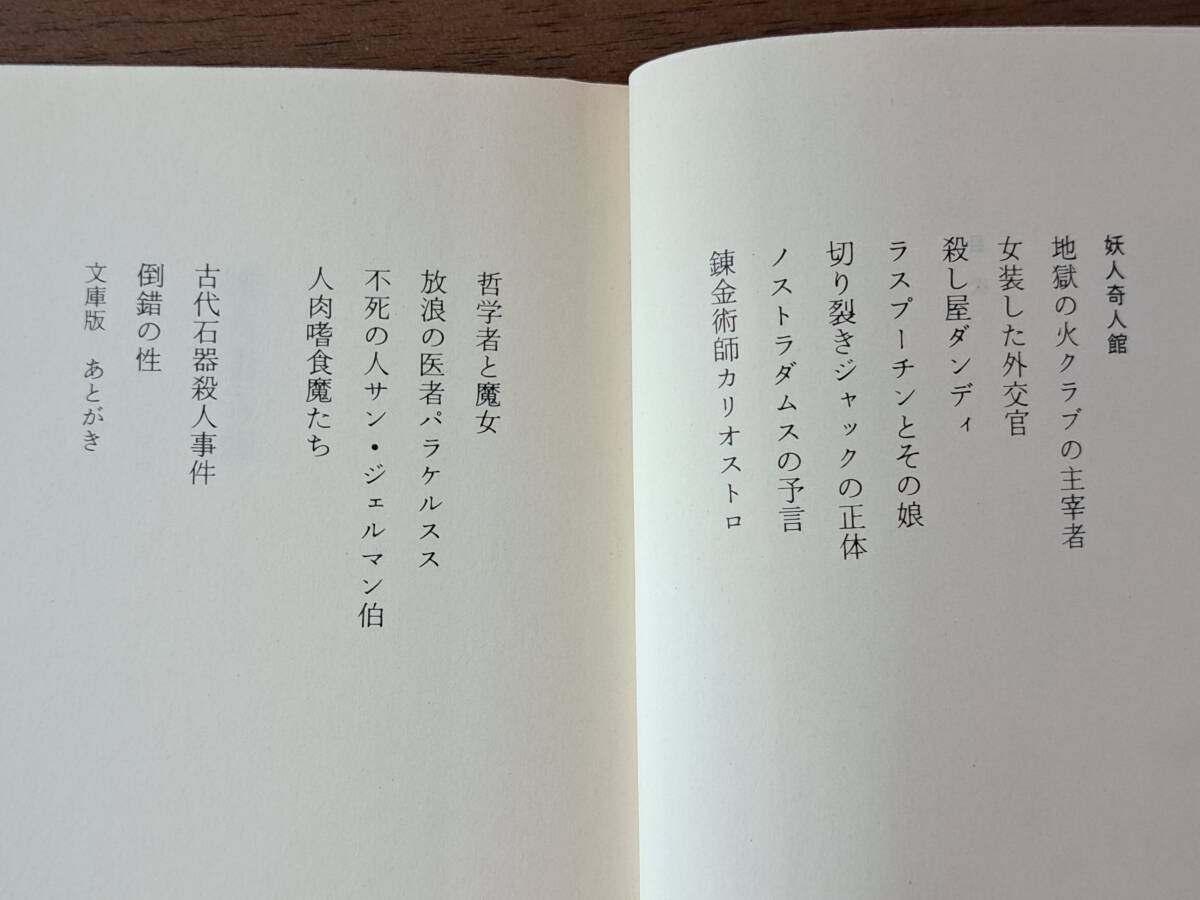 妖人奇人館
地獄の火クラブの主宰者
女装した外交官
殺し屋ダンディ
ラスプーチンとその娘
切り裂きジャックの正体
ノストラダムスの予言
錬金術師カリオストロ
哲学者と魔女
放浪の医者パラケルスス
不死の人サン・ジェルマン伯
人肉嗜食魔たち
古代石器殺人事件
倒錯の性
文庫版 あとがき